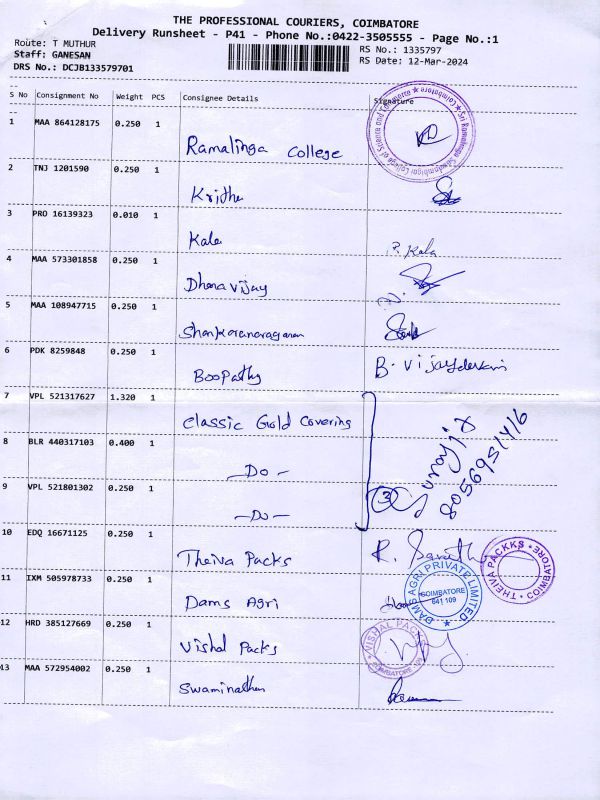 THE PROFESSIONAL COURIERS, COIMBATORE
Delivery Runsheet - P41 - Phone No.:0422-3505555 - Page No.:1
Route: T MUTHUR RS No.: 1335797
Staff: GANESAN RS Date: 12-Mar-2024
DRS No.: DCJB133579701
S No Consignment No Weight PCS Consignee Details Signature
1 MAA 864128175 0.250 1 Ramalinga College
2 TNJ 1201590 0.250 1 Krithi
3 PRO 16139323 0.010 1 Kala P. Kala
4 MAA 573301858 0.250 1 Dhanavijay
5 MAA 108947715 0.250 1 Shankaranarayanan
6 PDK 8259848 0.250 1 Boopathy B. Vijay
7 VPL 521317627 1.320 1 Classic Gold Covering
8 BLR 440317103 0.400 1 -Do-
9 VPL 521801302 0.250 1 -Do- 3
10 EDQ 16671125 0.250 1 Theiva Packs R.
THEIVA PACKKS COIMBATORE
11 IXM 505978733 0.250 1 Dams Agri
DAMS AGRI PRIVATE LIMITED COIMBATORE 641 109
12 HRD 385127669 0.250 1 Vishal Packs
VISHAL PACKS COIMBATORE
13 MAA 572954002 0.250 1 Swaminathan